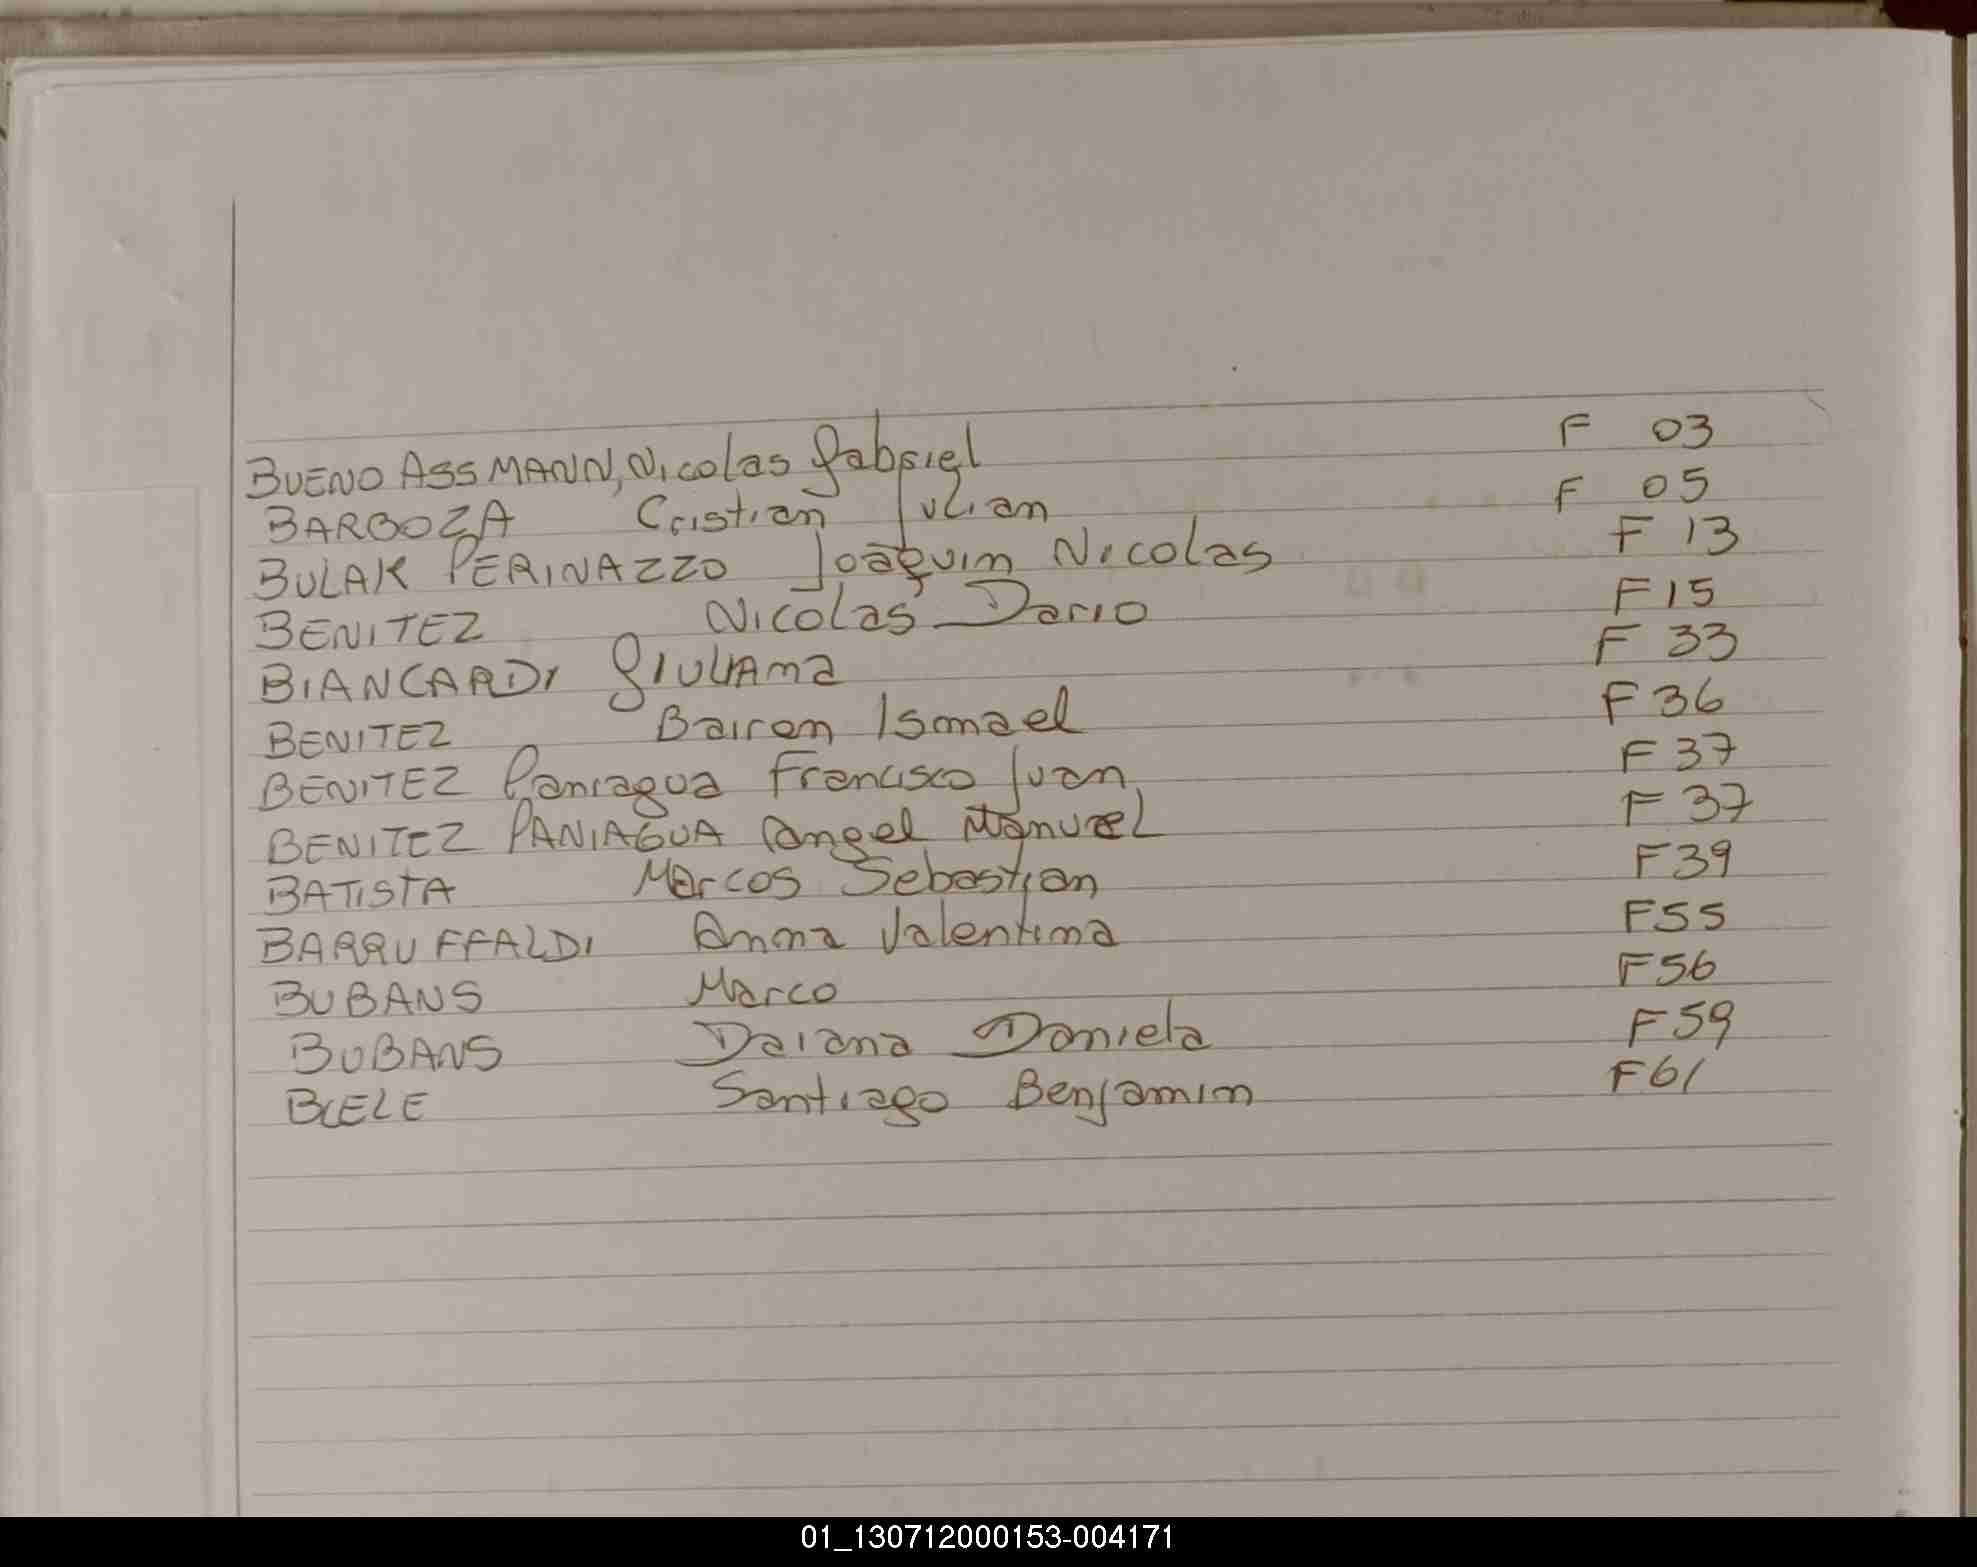 BUENO ASSMANN, Nicolas Gabriel F 03
BARBOZA Cristian Julian F 05
BULAK PERINAZZO Joaquim Nicolas F 13
BENITEZ Nicolas Dario F15
BIANCARDI GIULIAna F 33
BENITEZ Bairon Ismael F 36
BENITEZ Paniagua Francisco Juan F 37
BENITEZ PANIAGUA Angel Manuel F 37
BATISTA Marcos Sebastian F39
BARRUFFALDI Anna Valentina F55
BUBANS Marco F56
BUBANS Daiana Daniela F59
BIELE Santiago Benjamin F61
01_130712000153-004171